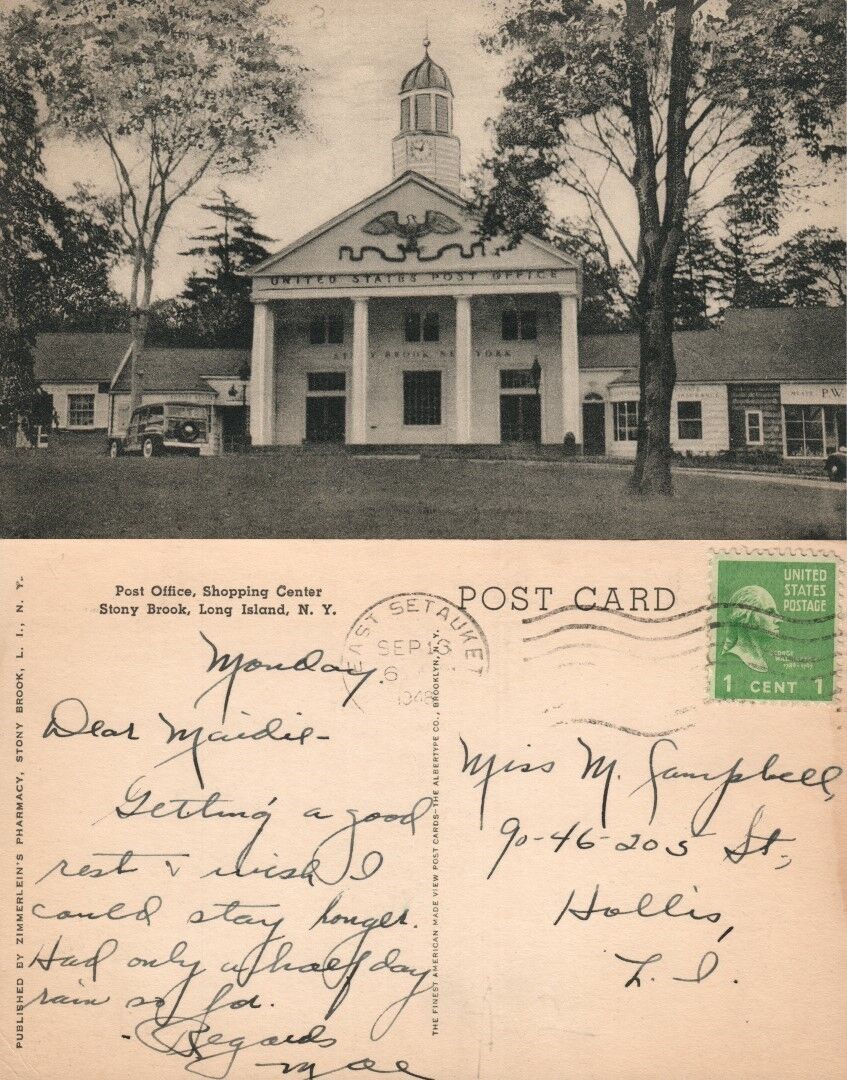 UNITED STATES POST OFFICE
STONY BROOK NEW YORK
MEATS P.W
Post Office, Shopping Center
Stony Brook, Long Island, N. Y.
POST CARD
EAST SETAUKET
SEP 13
6
1948
UNITED
STATES
POSTAGE
GEORGE
WASHINGTON
1789-1797
1 CENT 1
PUBLISHED BY ZIMMERLEIN'S PHARMACY, STONY BROOK, L. I., N. Y.
THE FINEST AMERICAN MADE VIEW POST CARDS—THE ALBERTYPE CO., BROOKLYN, N. Y.
Monday.
Dear Maidie-
Getting a good
rest & wish I
could stay longer.
Had only a half day
rain so far.
- Regards
Mae
Miss M. Campbell,
90-46-205 St.,
Hollis,
L. I.